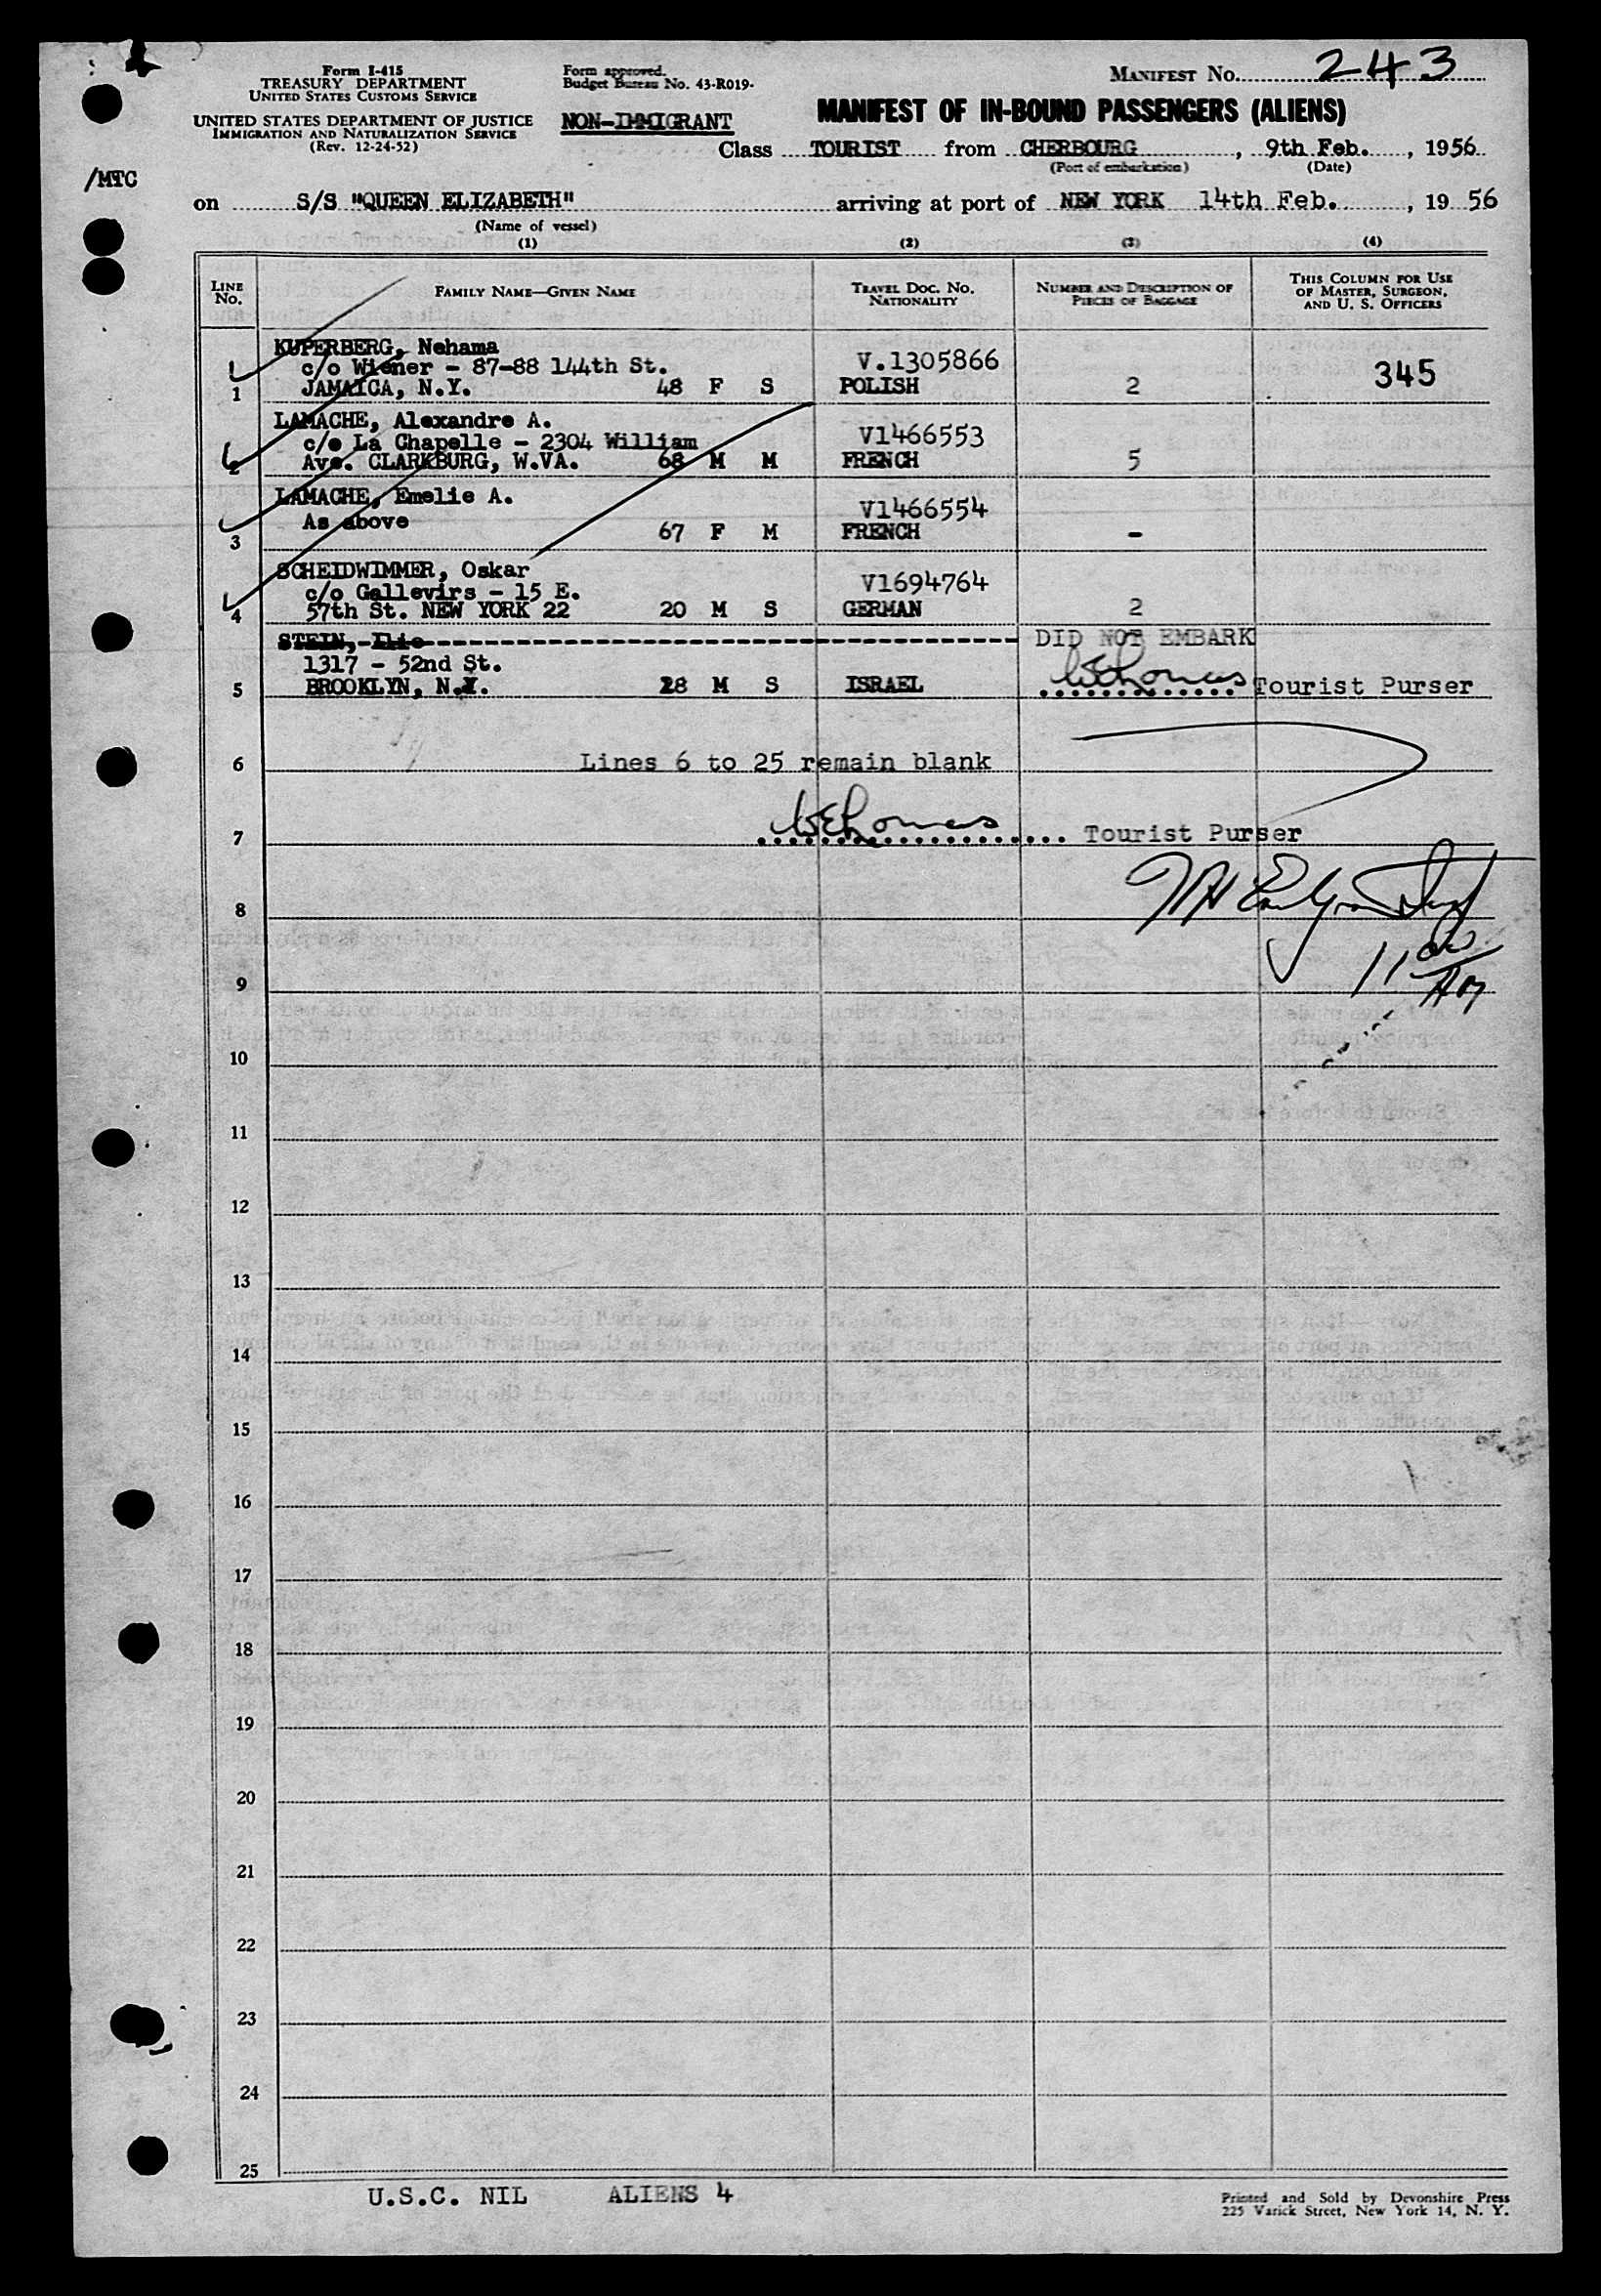 Form I-415
TREASURY DEPARTMENT
UNITED STATES CUSTOMS SERVICE
UNITED STATES DEPARTMENT OF JUSTICE
IMMIGRATION AND NATURALIZATION SERVICE
(Rev. 12-24-52)
Form approved.
Budget Bureau No. 43-R019-
NON-IMMIGRANT
MANIFEST NO. 243
MANIFEST OF IN-BOUND PASSENGERS (ALIENS)
Class TOURIST from CHERBOURG, 9th Feb., 1956
(Port of embarkation) (Date)
/MTC
on S/S "QUEEN ELIZABETH" arriving at port of NEW YORK 14th Feb., 19 56
(Name of vessel)
(1) (2) (3) (4)
LINE NO.
FAMILY NAME—GIVEN NAME
TRAVEL DOC. NO. NATIONALITY
NUMBER AND DESCRIPTION OF PIECES OF BAGGAGE
THIS COLUMN FOR USE OF MASTER, SURGEON, AND U. S. OFFICERS
KUPERBERG, Nehama
c/o Wiener - 87-88 144th St. V.1305866 345
1 JAMAICA, N.Y. 48 F S POLISH 2
LAMACHE, Alexandre A.
c/o La Chapelle - 2304 William V1466553
2 Ave. CLARKBURG, W.VA. 68 M M FRENCH 5
LAMACHE, Emelie A.
As above V1466554
3 67 F M FRENCH -
SCHEIDWIMMER, Oskar
c/o Gallevirs - 15 E. V1694764
4 57th St. NEW YORK 22 20 M S GERMAN 2
STEIN, Ilie DID NOT EMBARK
1317 - 52nd St.
5 BROOKLYN, N.Y. 28 M S ISRAEL WEThomas Tourist Purser
6 Lines 6 to 25 remain blank
7 WEThomas Tourist Purser
8
9
10
11
12
13
14
15
16
17
18
19
20
21
22
23
24
25
U.S.C. NIL ALIENS 4
Printed and Sold by Devonshire Press
225 Varick Street, New York 14, N. Y.